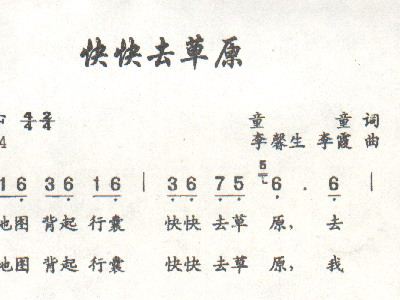 快快去草原
4/4 2/4
童 童 词
4 李馨生 李霞 曲
5
16 36 16 | 36 75 6 . 6 |
地图 背起 行囊 快快 去草 原, 去
地图 背起 行囊 快快 去草 原, 我